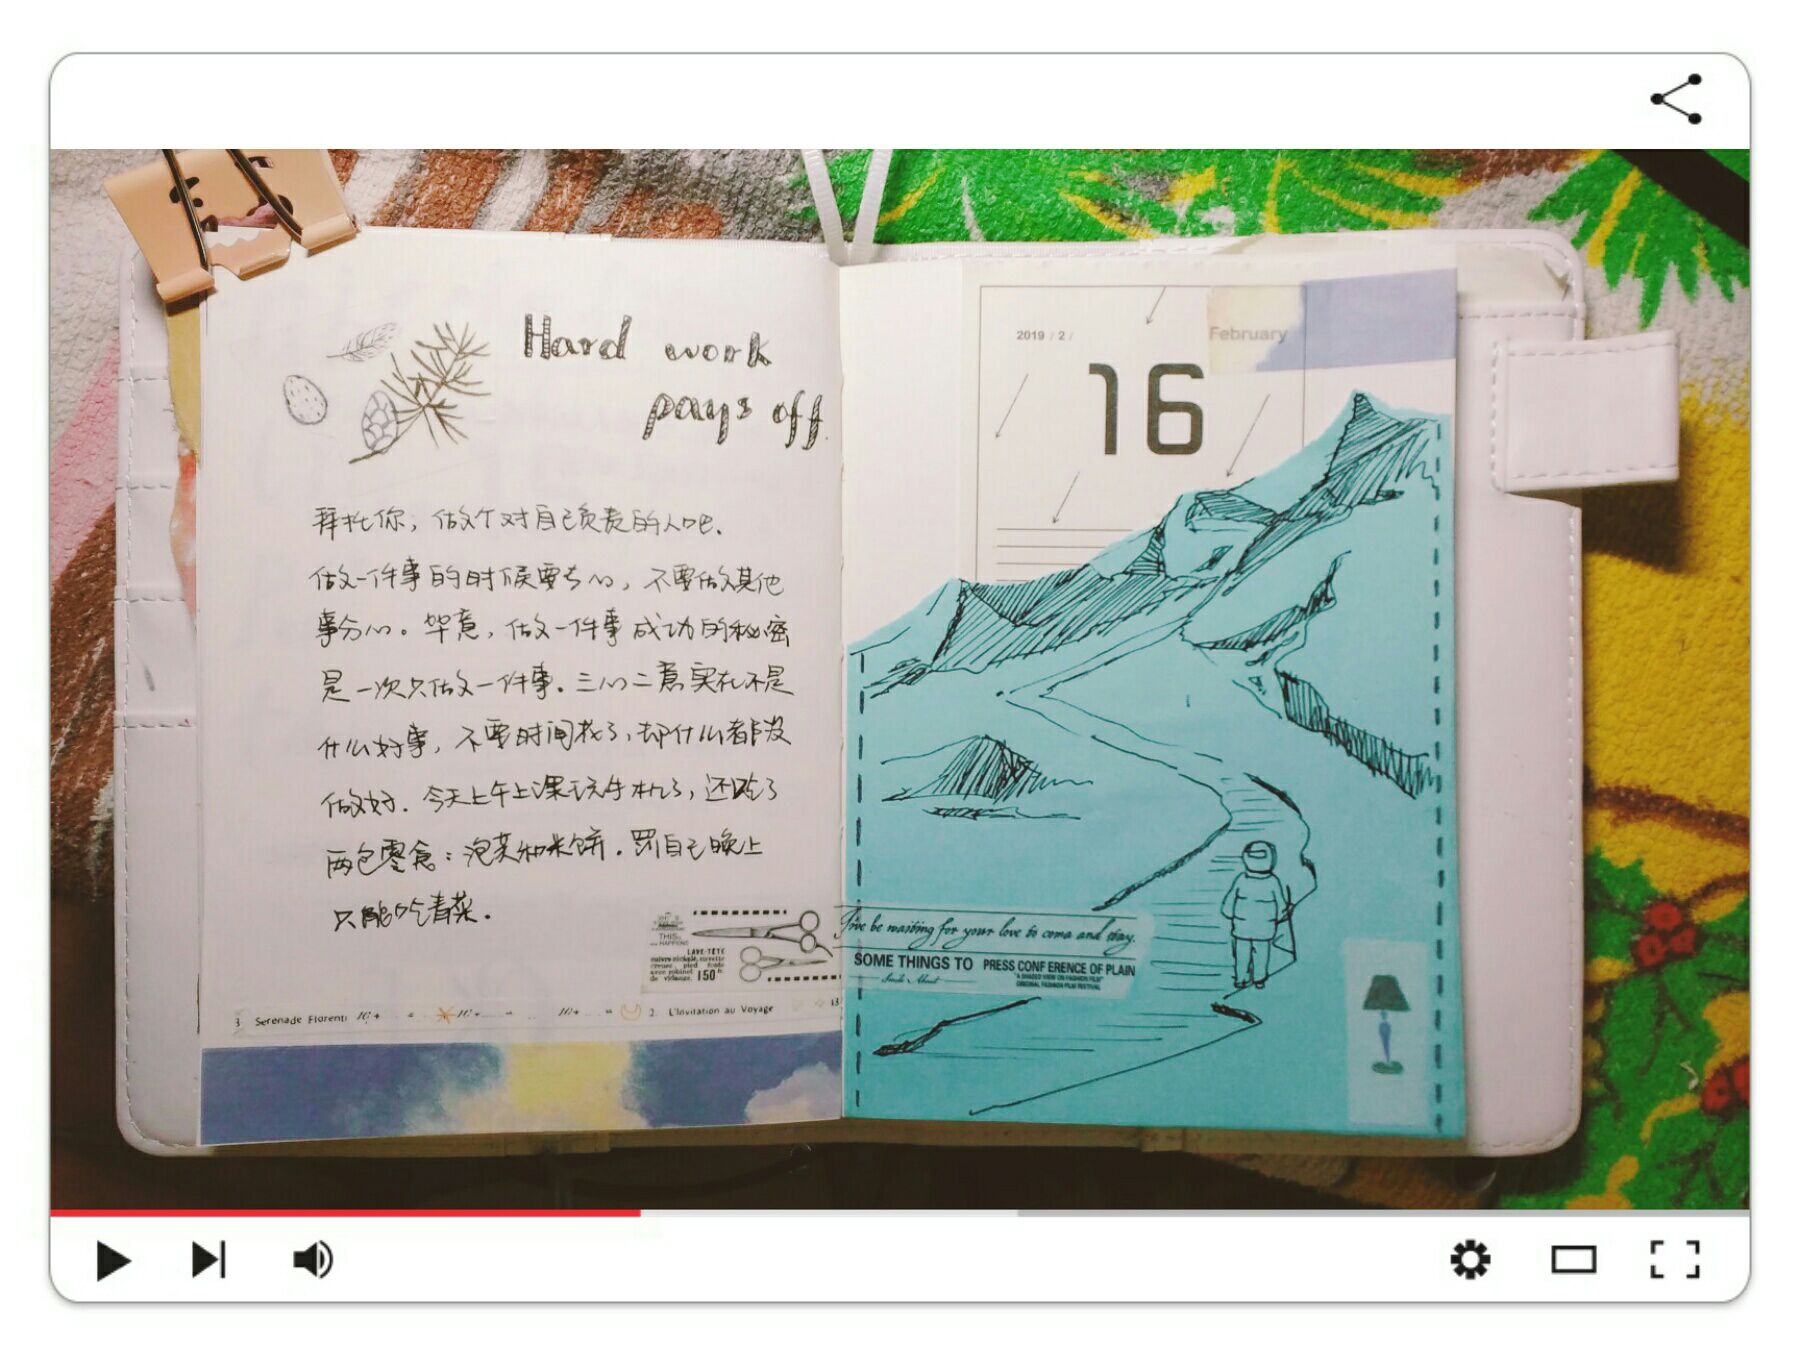 Hard work
pays off.
拜托你，做个对自己负责的人吧.
做一件事的时候要专心，不要做其他
事分心。毕竟，做一件事成功的秘密
是一次只做一件事.三心二意实在不是
什么好事，不要时间花了，却什么都没
做好.今天上午上课玩手机了，还吃了
两包零食：泡菜和米饼.罚自己晚上
只能吃青菜.
THIS
HAPPENS
LAVE-TÊTE
150 fr.
3 Serenade Florenti
2. L'Invitation au Voyage
13
2019 / 2 /
February
16
I've be waiting for your love to come and stay.
SOME THINGS TO
PRESS CONF ERENCE OF PLAIN
"A SHADED VIEW ON FASHION FILM"
ORIGINAL FASHION FILM FESTIVAL